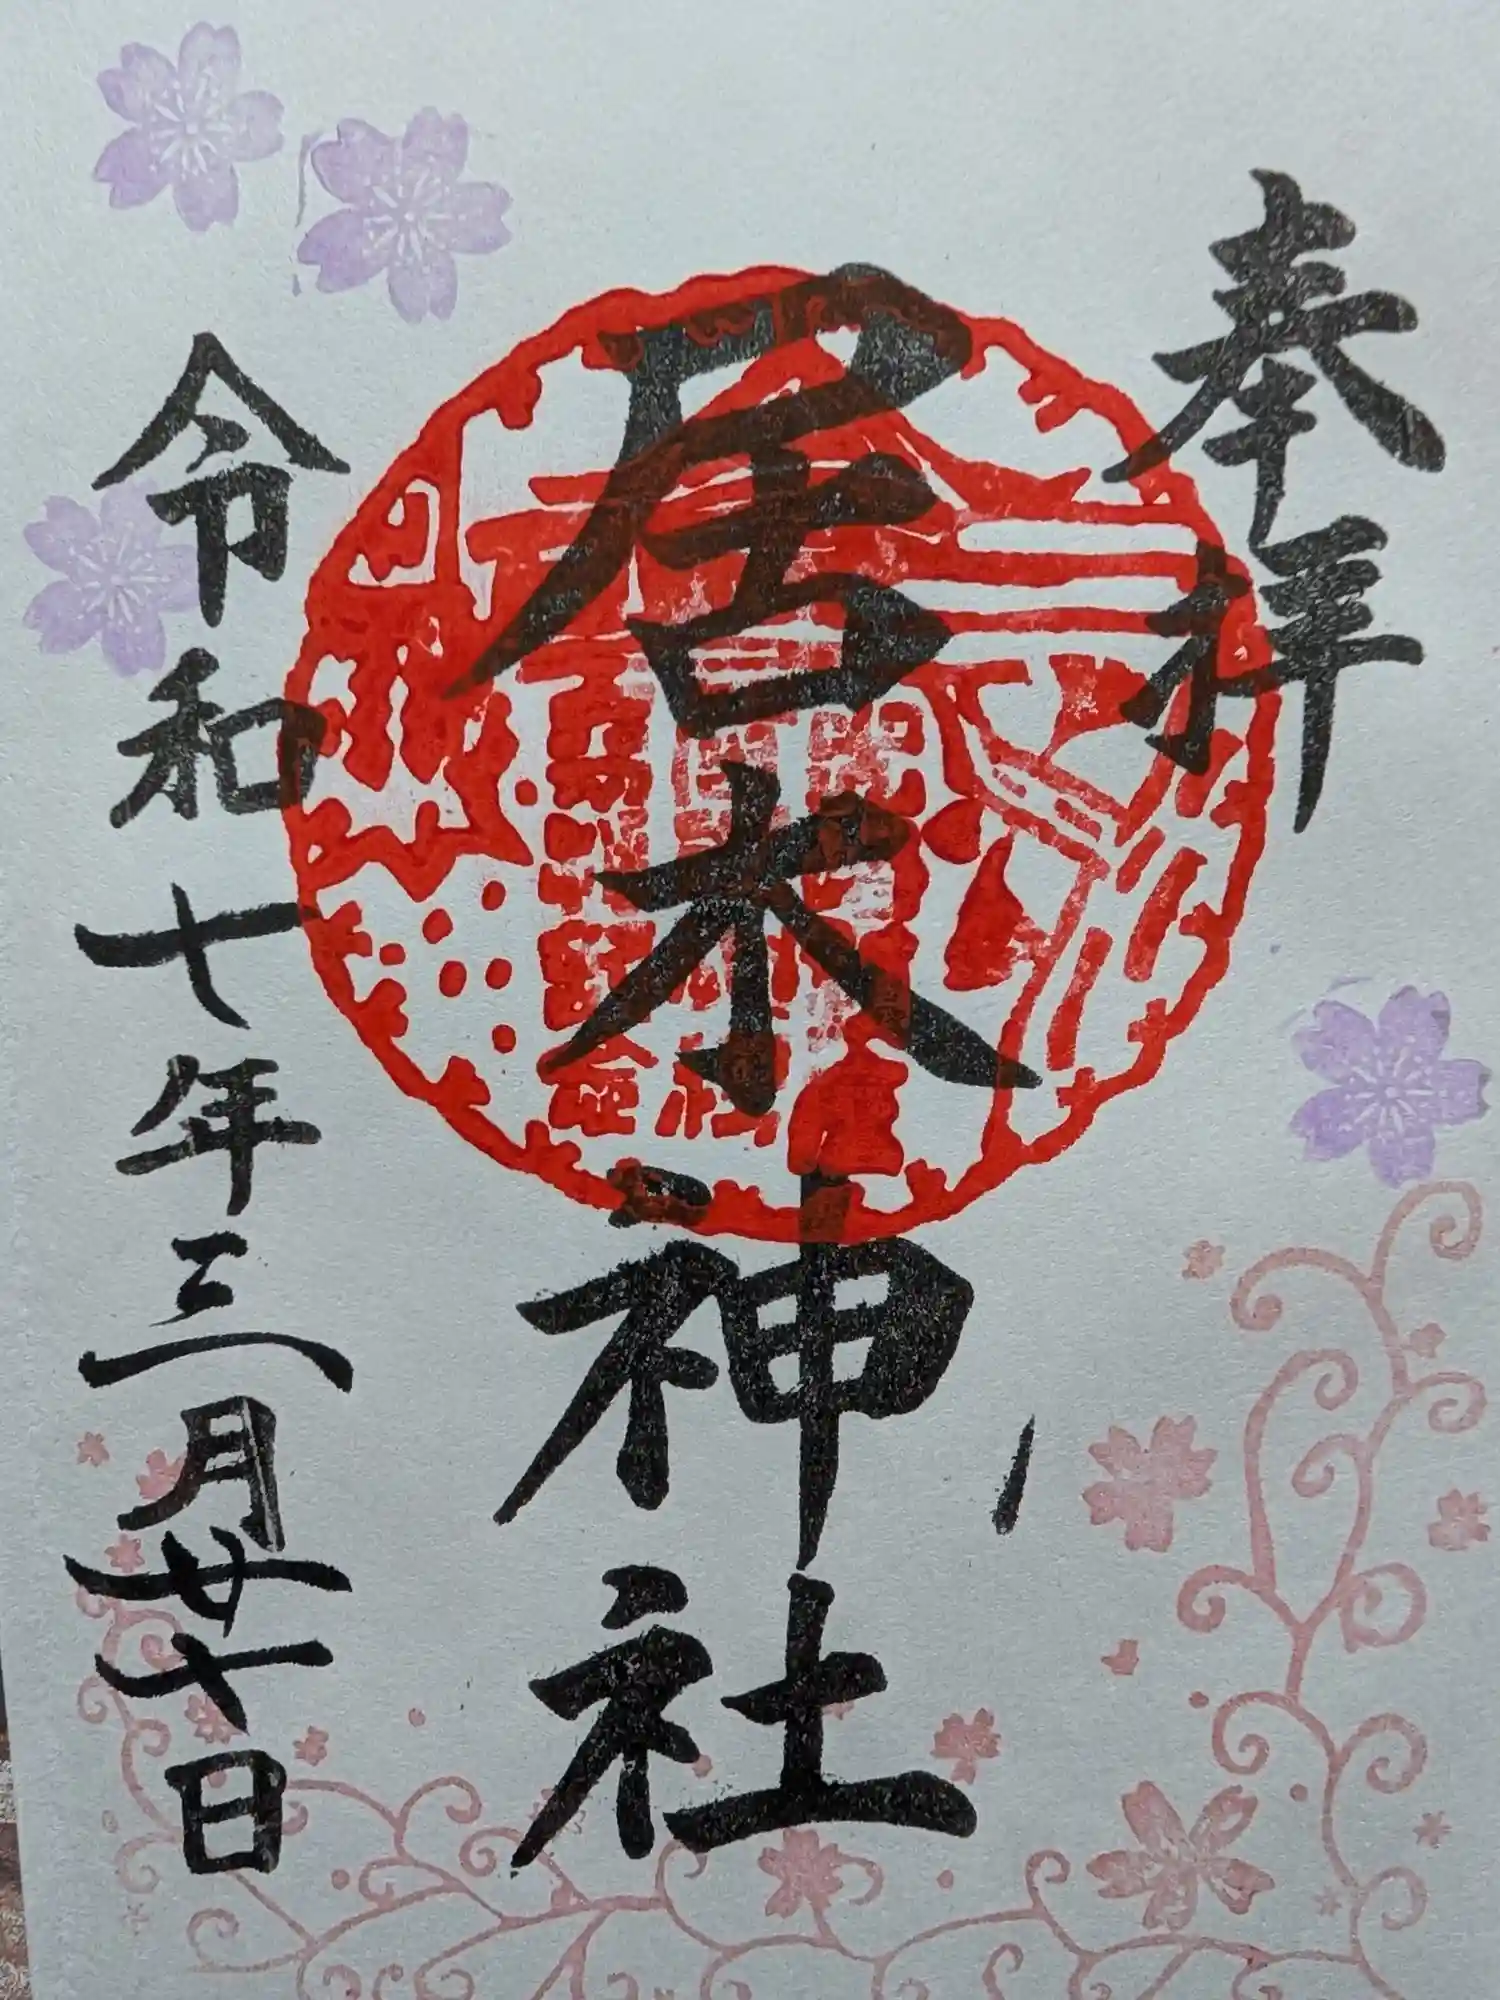 奉拝
居木神社
令和七年三月廿七日